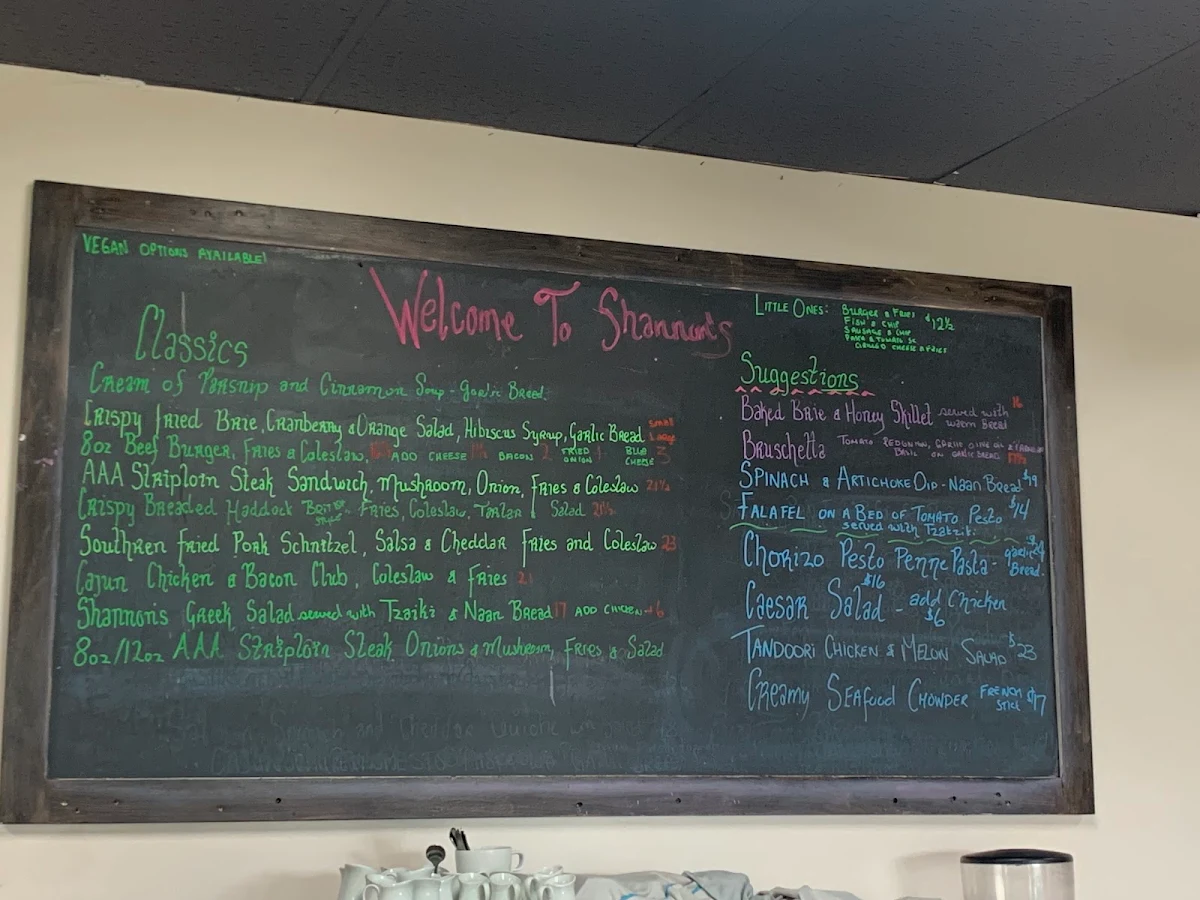 VEGAN OPTIONS AVAILABLE!
Welcome To Shannon's
Classics
Cream of Parsnip and Cinnamon Soup - Garlic Bread
Crispy Fried Brie, Cranberry & Orange Salad, Hibiscus Syrup, Garlic Bread Small Large
8oz Beef Burger, Fries & Coleslaw, ADD CHEESE BACON 2 FRIED ONION 1 BLUE CHEESE 3
AAA Striploin Steak Sandwich, Mushroom, Onion, Fries & Coleslaw 21½
Crispy Breaded Haddock Fries, Coleslaw, Tartar & Salad 20½
Southren Fried Pork Schnitzel, Salsa & Cheddar Fries and Coleslaw 23
Cajun Chicken & Bacon Club, Coleslaw & Fries 21
Shannon's Greek Salad served with Tzaiki & Naan Bread 17 ADD CHICKEN +6
8oz/12oz AAA Striploin Steak Onions & Mushroom, Fries & Salad
LITTLE ONES: BURGER & FRIES $12½
FISH & CHIP
SAUSAGE & CHIP
PASTA & TOMATO SC
GRILLED CHEESE & FRIES
Suggestions
Baked Brie & Honey Skillet served with warm Bread 16
Bruschetta TOMATO RED ONION, GARLIC OLIVE OIL
BASIL ON GARLIC BREAD
SPINACH & ARTICHOKE DIP - NAAN BREAD $19
FALAFEL ON A BED OF TOMATO PESTO $14
served with Tzatziki
Chorizo Pesto Penne Pasta - garlic Bread.
Caesar Salad $16 - add Chicken $6
TANDOORI CHICKEN & MELON SALAD $23
Creamy SEAFOOD CHOWDER FRENCH STICK $17